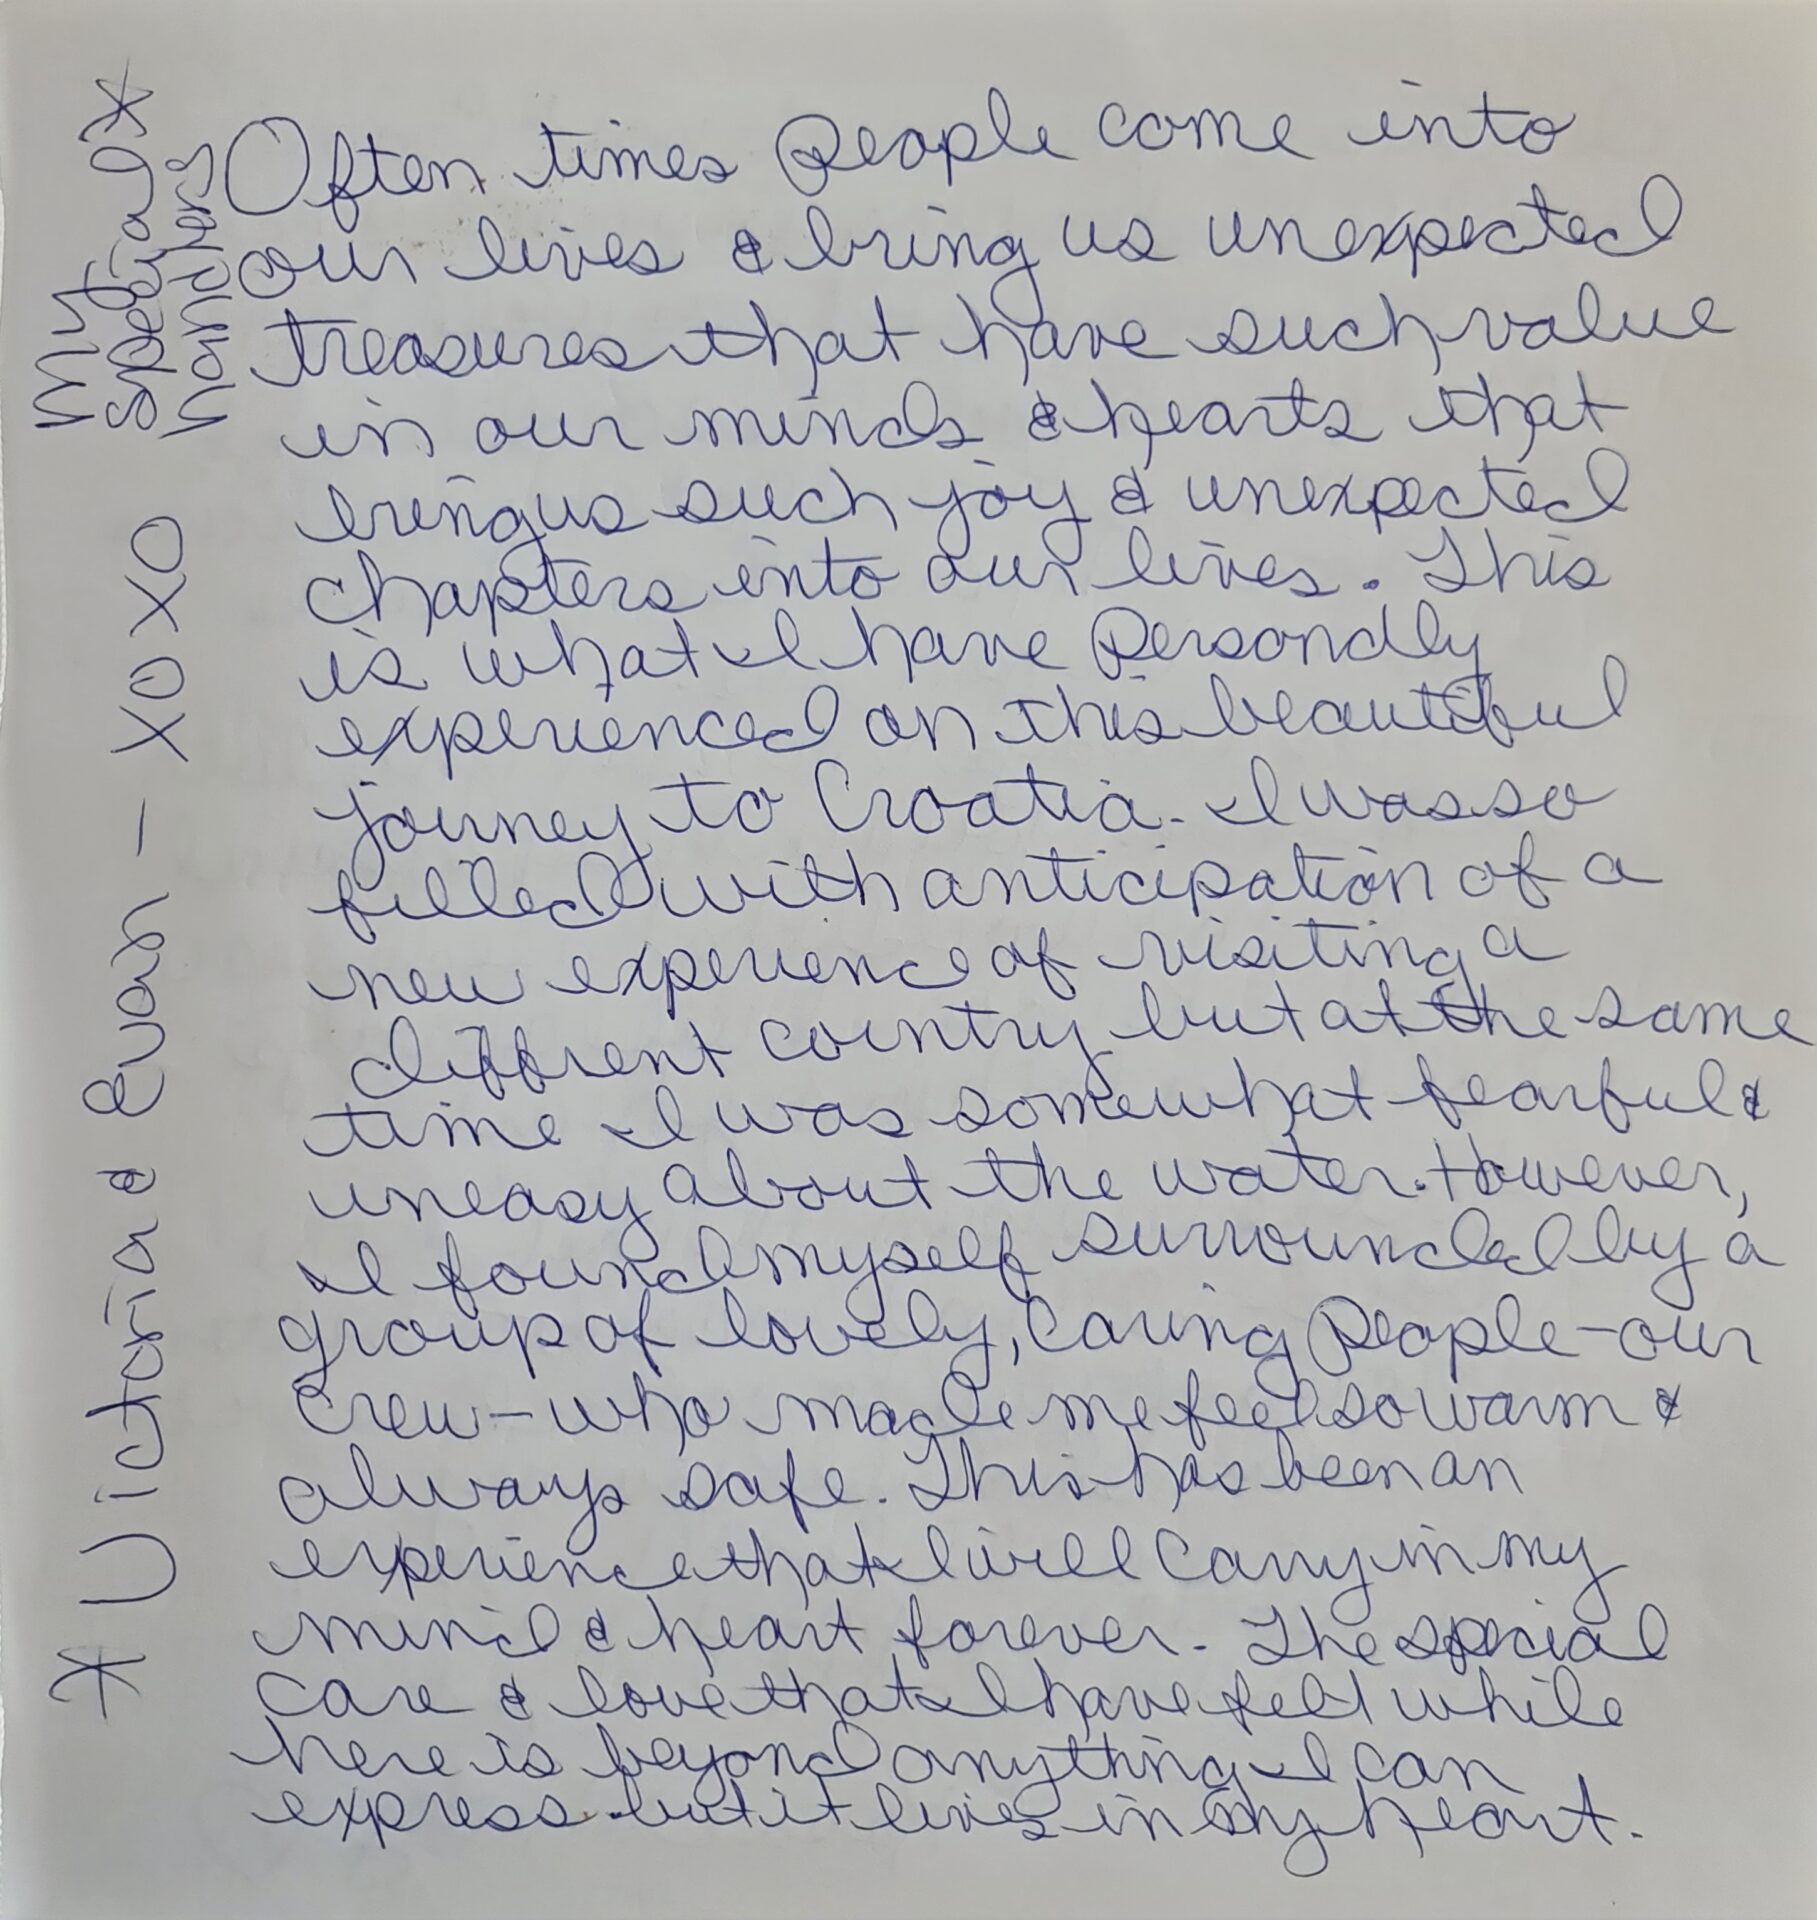 Often times people come into
our lives & bring us unexpected
treasures that have such value
in our minds & hearts that
bring us such joy & unexpected
chapters into our lives. This
is what I have personally
experienced on this beautiful
journey to Croatia. I was so
filled with anticipation of a
new experience of visiting a
different country but at the same
time I was somewhat fearful &
uneasy about the water. However,
I found myself surrounded by a
group of lovely, caring people - our
crew - who made me feel so warm &
always safe. This has been an
experience that I will carry in my
mind & heart forever. The special
care & love that I have felt while
here is beyond anything I can
express but it lives in my heart.
* Victoria & Evan - XOXO
my
special *
handlers